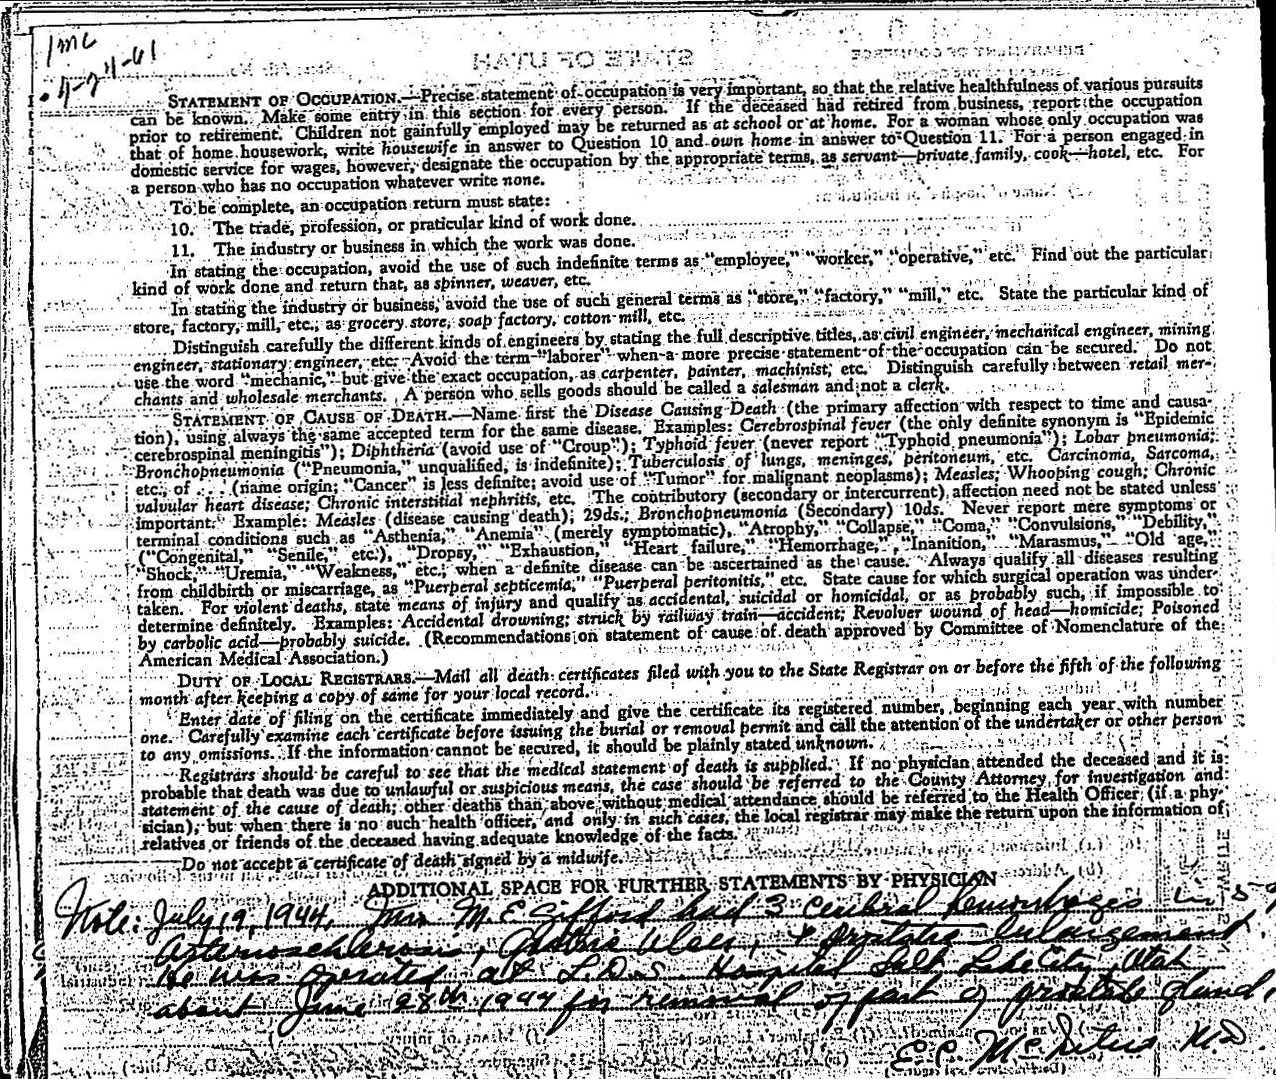 4-24-61
STATEMENT OF OCCUPATION.—Precise statement of occupation is very important, so that the relative healthfulness of various pursuits
can be known. Make some entry in this section for every person. If the deceased had retired from business, report the occupation
prior to retirement. Children not gainfully employed may be returned as at school or at home. For a woman whose only occupation was
that of home housework, write housewife in answer to Question 10 and own home in answer to Question 11. For a person engaged in
domestic service for wages, however, designate the occupation by the appropriate terms, as servant—private family, cook—hotel, etc. For
a person who has no occupation whatever write none.
To be complete, an occupation return must state:
10. The trade, profession, or praticular kind of work done.
11. The industry or business in which the work was done.
In stating the occupation, avoid the use of such indefinite terms as "employee," "worker," "operative," etc. Find out the particular
kind of work done and return that, as spinner, weaver, etc.
In stating the industry or business, avoid the use of such general terms as "store," "factory," "mill," etc. State the particular kind of
store, factory, mill, etc., as grocery store, soap factory, cotton mill, etc.
Distinguish carefully the different kinds of engineers by stating the full descriptive titles, as civil engineer, mechanical engineer, mining
engineer, stationary engineer, etc. Avoid the term "laborer" when a more precise statement of the occupation can be secured. Do not
use the word "mechanic," but give the exact occupation, as carpenter, painter, machinist, etc. Distinguish carefully between retail mer-
chants and wholesale merchants. A person who sells goods should be called a salesman and not a clerk.
STATEMENT OF CAUSE OF DEATH.—Name first the Disease Causing Death (the primary affection with respect to time and causa-
tion), using always the same accepted term for the same disease. Examples: Cerebrospinal fever (the only definite synonym is "Epidemic
cerebrospinal meningitis"); Diphtheria (avoid use of "Croup"); Typhoid fever (never report "Typhoid pneumonia"); Lobar pneumonia;
Bronchopneumonia ("Pneumonia," unqualified, is indefinite); Tuberculosis of lungs, meninges, peritoneum, etc. Carcinoma, Sarcoma,
etc., of . . . (name origin; "Cancer" is less definite; avoid use of "Tumor" for malignant neoplasms); Measles; Whooping cough; Chronic
valvular heart disease; Chronic interstitial nephritis, etc. The contributory (secondary or intercurrent) affection need not be stated unless
important. Example: Measles (disease causing death); 29ds.; Bronchopneumonia (Secondary) 10ds. Never report mere symptoms or
terminal conditions such as "Asthenia," "Anemia" (merely symptomatic), "Atrophy," "Collapse," "Coma," "Convulsions," "Debility,"
("Congenital," "Senile," etc.), "Dropsy," "Exhaustion," "Heart failure," "Hemorrhage," "Inanition," "Marasmus," "Old age,"
"Shock," "Uremia," "Weakness," etc., when a definite disease can be ascertained as the cause. Always qualify all diseases resulting
from childbirth or miscarriage, as "Puerperal septicemia," "Puerperal peritonitis," etc. State cause for which surgical operation was under-
taken. For violent deaths, state means of injury and qualify as accidental, suicidal or homicidal, or as probably such, if impossible to
determine definitely. Examples: Accidental drowning; struck by railway train—accident; Revolver wound of head—homicide; Poisoned
by carbolic acid—probably suicide. (Recommendations on statement of cause of death approved by Committee of Nomenclature of the
American Medical Association.)
DUTY OF LOCAL REGISTRARS.—Mail all death certificates filed with you to the State Registrar on or before the fifth of the following
month after keeping a copy of same for your local record.
Enter date of filing on the certificate immediately and give the certificate its registered number, beginning each year with number
one. Carefully examine each certificate before issuing the burial or removal permit and call the attention of the undertaker or other person
to any omissions. If the information cannot be secured, it should be plainly stated unknown.
Registrars should be careful to see that the medical statement of death is supplied. If no physician attended the deceased and it is
probable that death was due to unlawful or suspicious means, the case should be referred to the County Attorney for investigation and
statement of the cause of death; other deaths than above without medical attendance should be referred to the Health Officer (if a phy-
sician), but when there is no such health officer, and only in such cases, the local registrar may make the return upon the information of
relatives or friends of the deceased having adequate knowledge of the facts.
Do not accept a certificate of death signed by a midwife.
ADDITIONAL SPACE FOR FURTHER STATEMENTS BY PHYSICIAN
Note: July 19, 1944, M. E. Gifford had 3 Cerebral hemorrhages in 5
Arteriosclerosis, Ulcer, & prostatic enlargement.
He was operated at L.D.S. Hospital Salt Lake City, Utah
about June 28th 1944 for removal of part of prostate gland,
E. C. McIntire M.D.